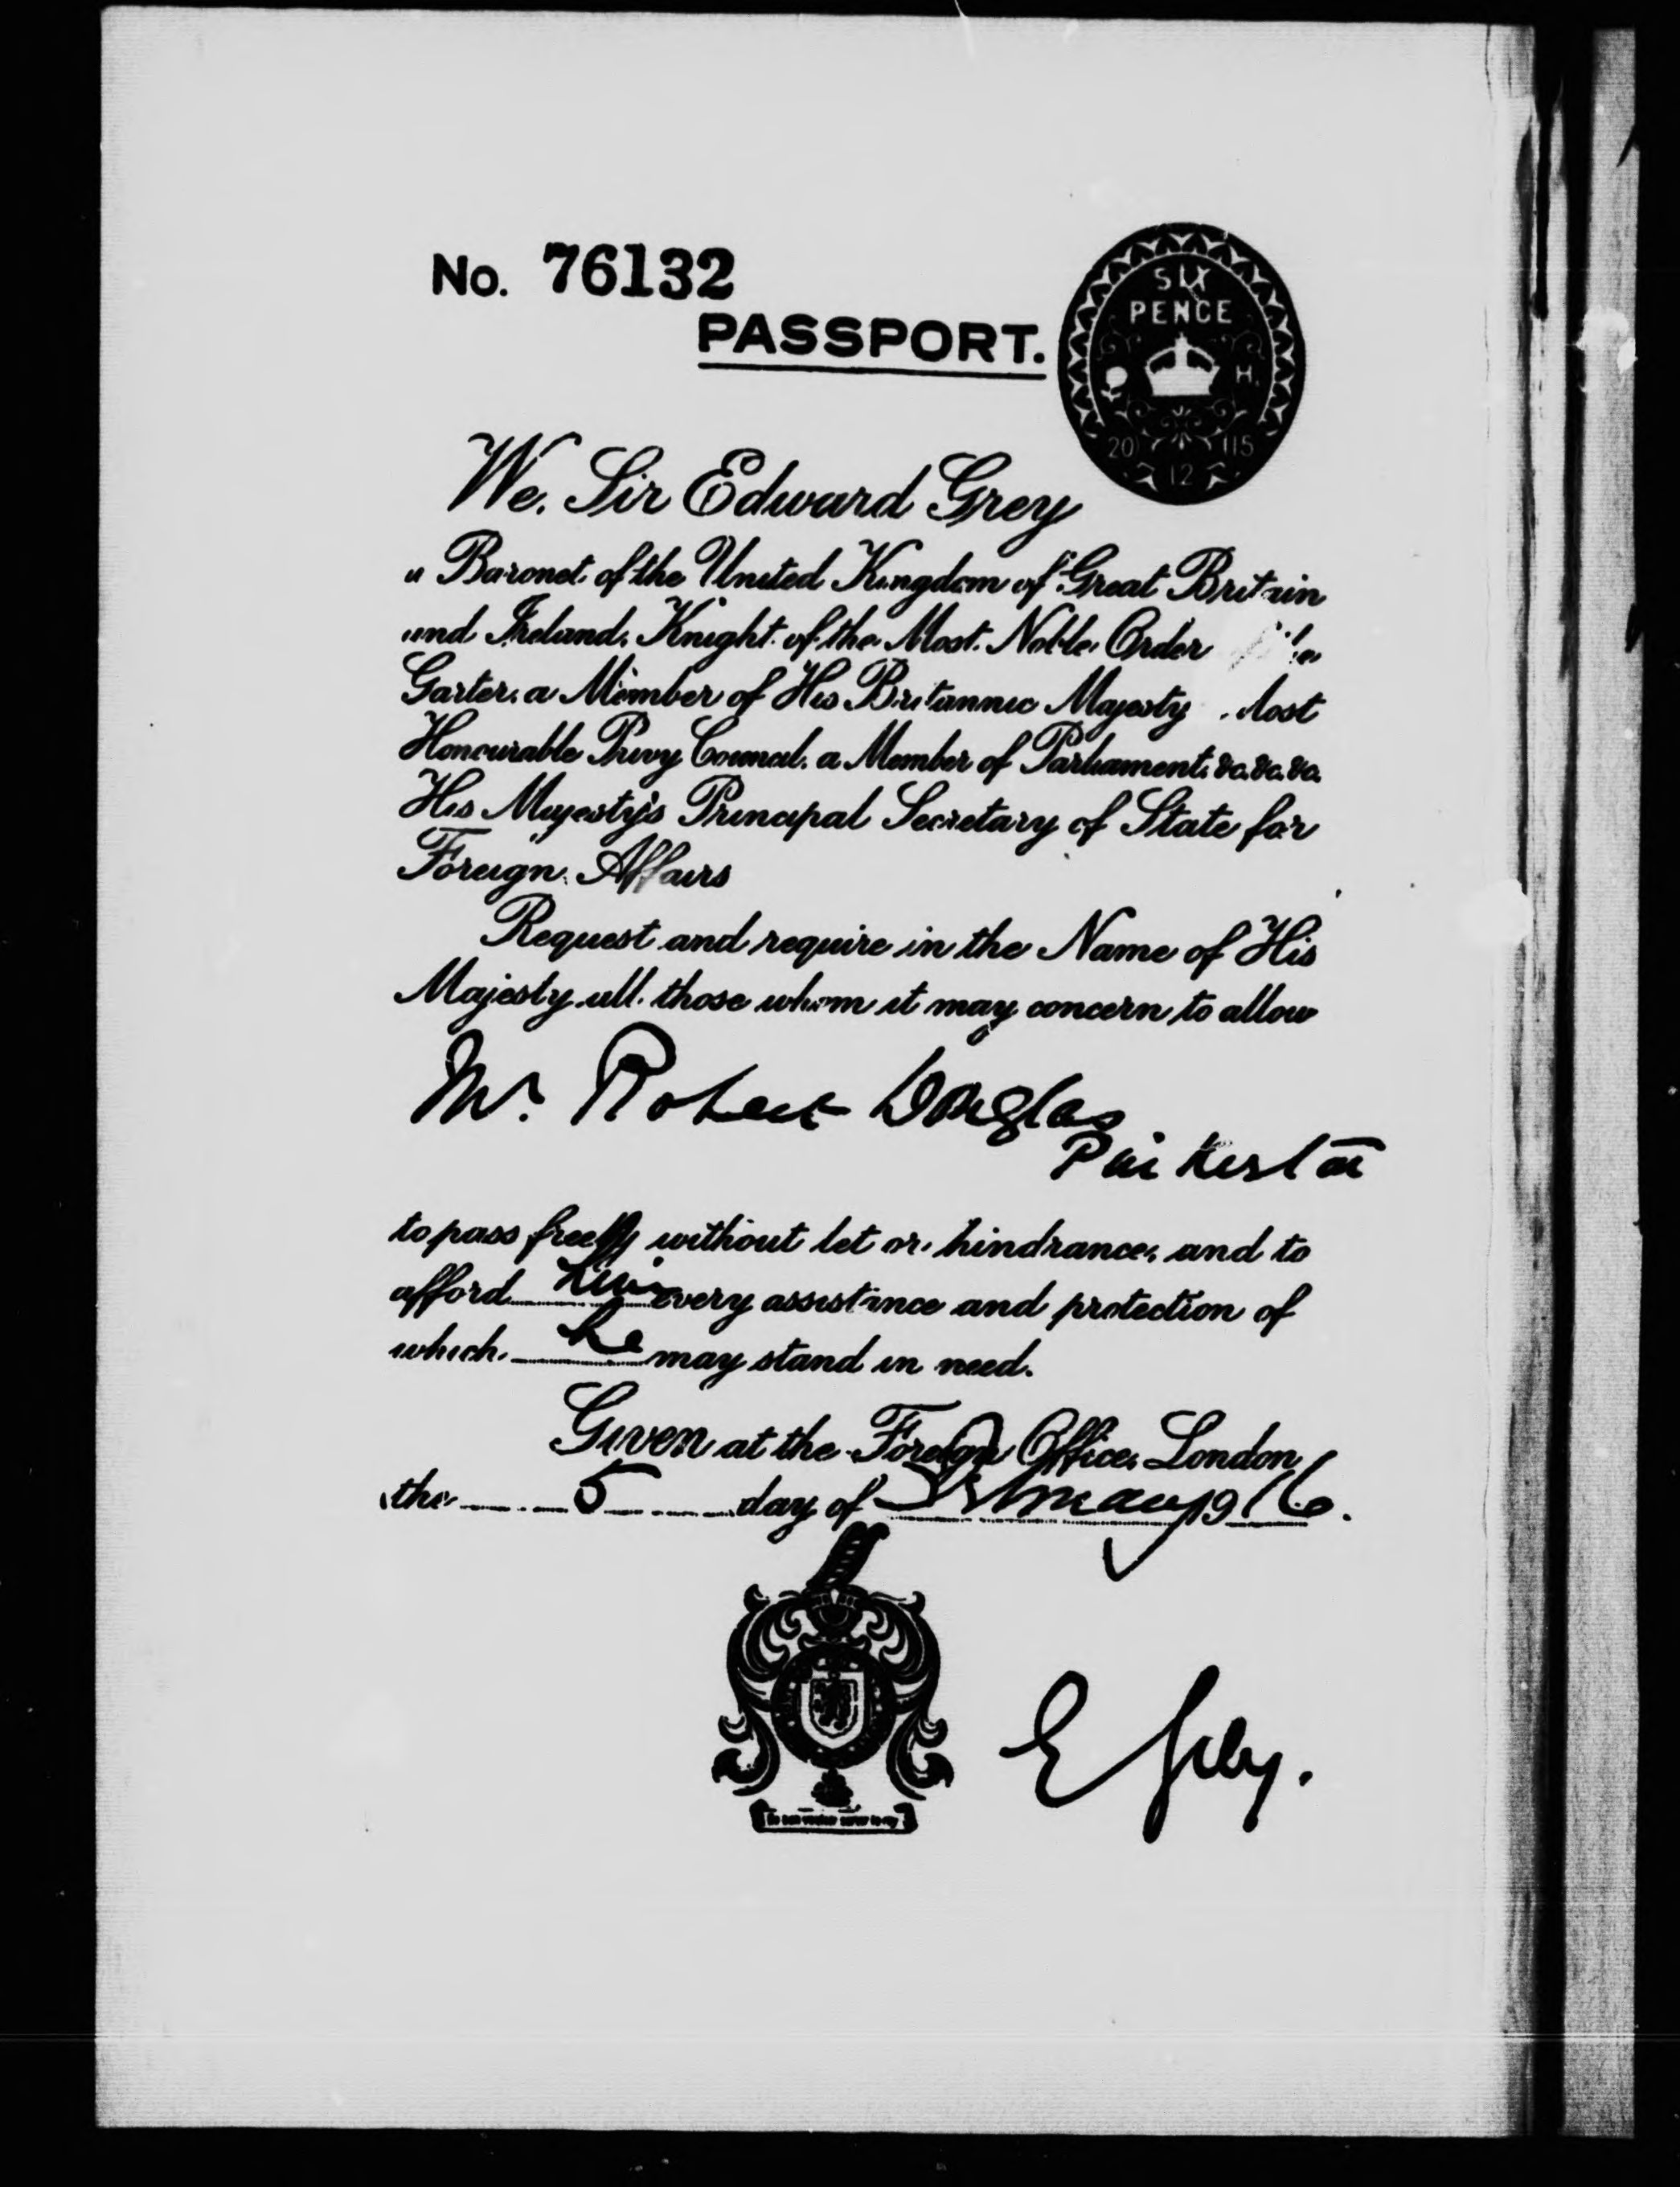 No. 76132
SIX
PENCE
PASSPORT.
H
20 115
12
We, Sir Edward Grey
a Baronet of the United Kingdom of Great Britain
and Ireland, Knight of the Most Noble Order
Garter, a Member of His Britannic Majesty Most
Honourable Privy Council, a Member of Parliament, &c. &c. &c.
His Majesty's Principal Secretary of State for
Foreign Affairs
Request and require in the Name of His
Majesty all those whom it may concern to allow
Mr. Robert Douglas
to pass freely without let or hindrance, and to
afford him every assistance and protection of
which he may stand in need.
Given at the Foreign Office, London,
the 5 day of 1916.
E Grey.